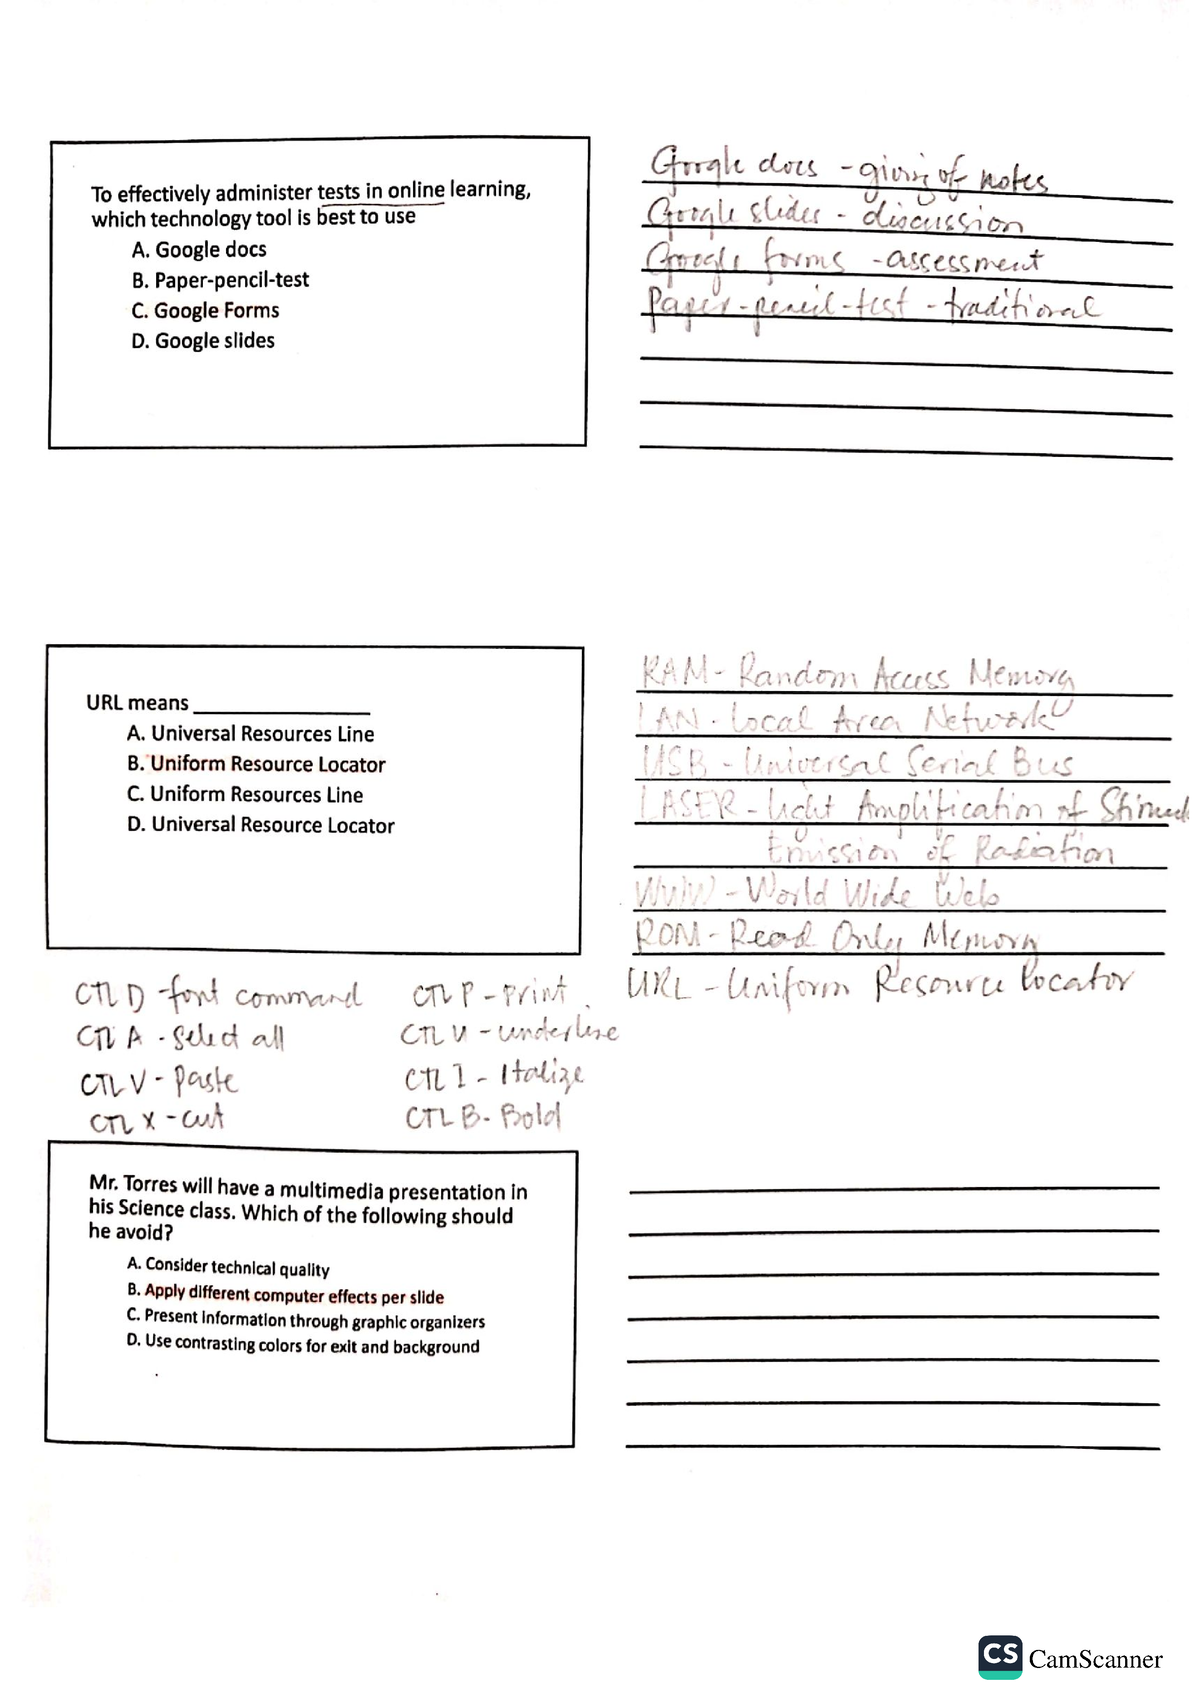 To effectively administer tests in online learning,
which technology tool is best to use
A. Google docs
B. Paper-pencil-test
C. Google Forms
D. Google slides
Google docs - giving of notes
Google slides - discussion
Google forms - assessment
Paper-pencil-test - traditional
URL means
A. Universal Resources Line
B. Uniform Resource Locator
C. Uniform Resources Line
D. Universal Resource Locator
RAM - Random Access Memory
LAN - Local Area Network
USB - Universal Serial Bus
LASER - Light Amplification of
Emission of Radiation
WWW - World Wide Web
ROM - Read Only Memory
URL - Uniform Resource Locator
CTL D - font command
CTL A - select all
CTL V - Paste
CTL X - cut
CTL P - print
CTL U - underline
CTL I - Italize
CTL B - Bold
Mr. Torres will have a multimedia presentation in
his Science class. Which of the following should
he avoid?
A. Consider technical quality
B. Apply different computer effects per slide
C. Present information through graphic organizers
D. Use contrasting colors for exit and background
CS CamScanner